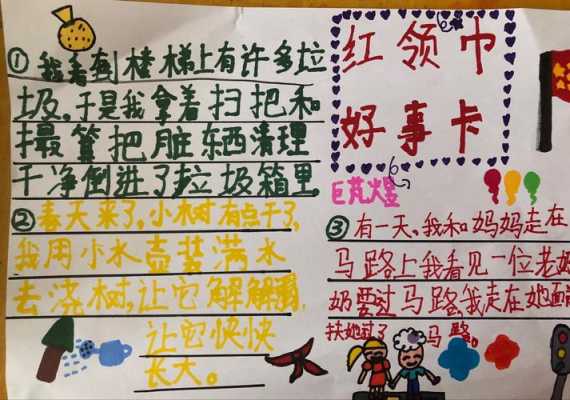 红领巾
好事卡
①我看到楼梯上有许多垃
圾。于是我拿着扫把和
撮箕把脏东西清理
干净倒进了垃圾箱里
②春天来了,小树有点干了,
我用小水壶装满水
去浇树,让它解解渴,
让它快快
长大。
③有一天,我和妈妈走在
马路上我看见一位老奶
奶要过马路,我走在她面前
扶她过了马路。